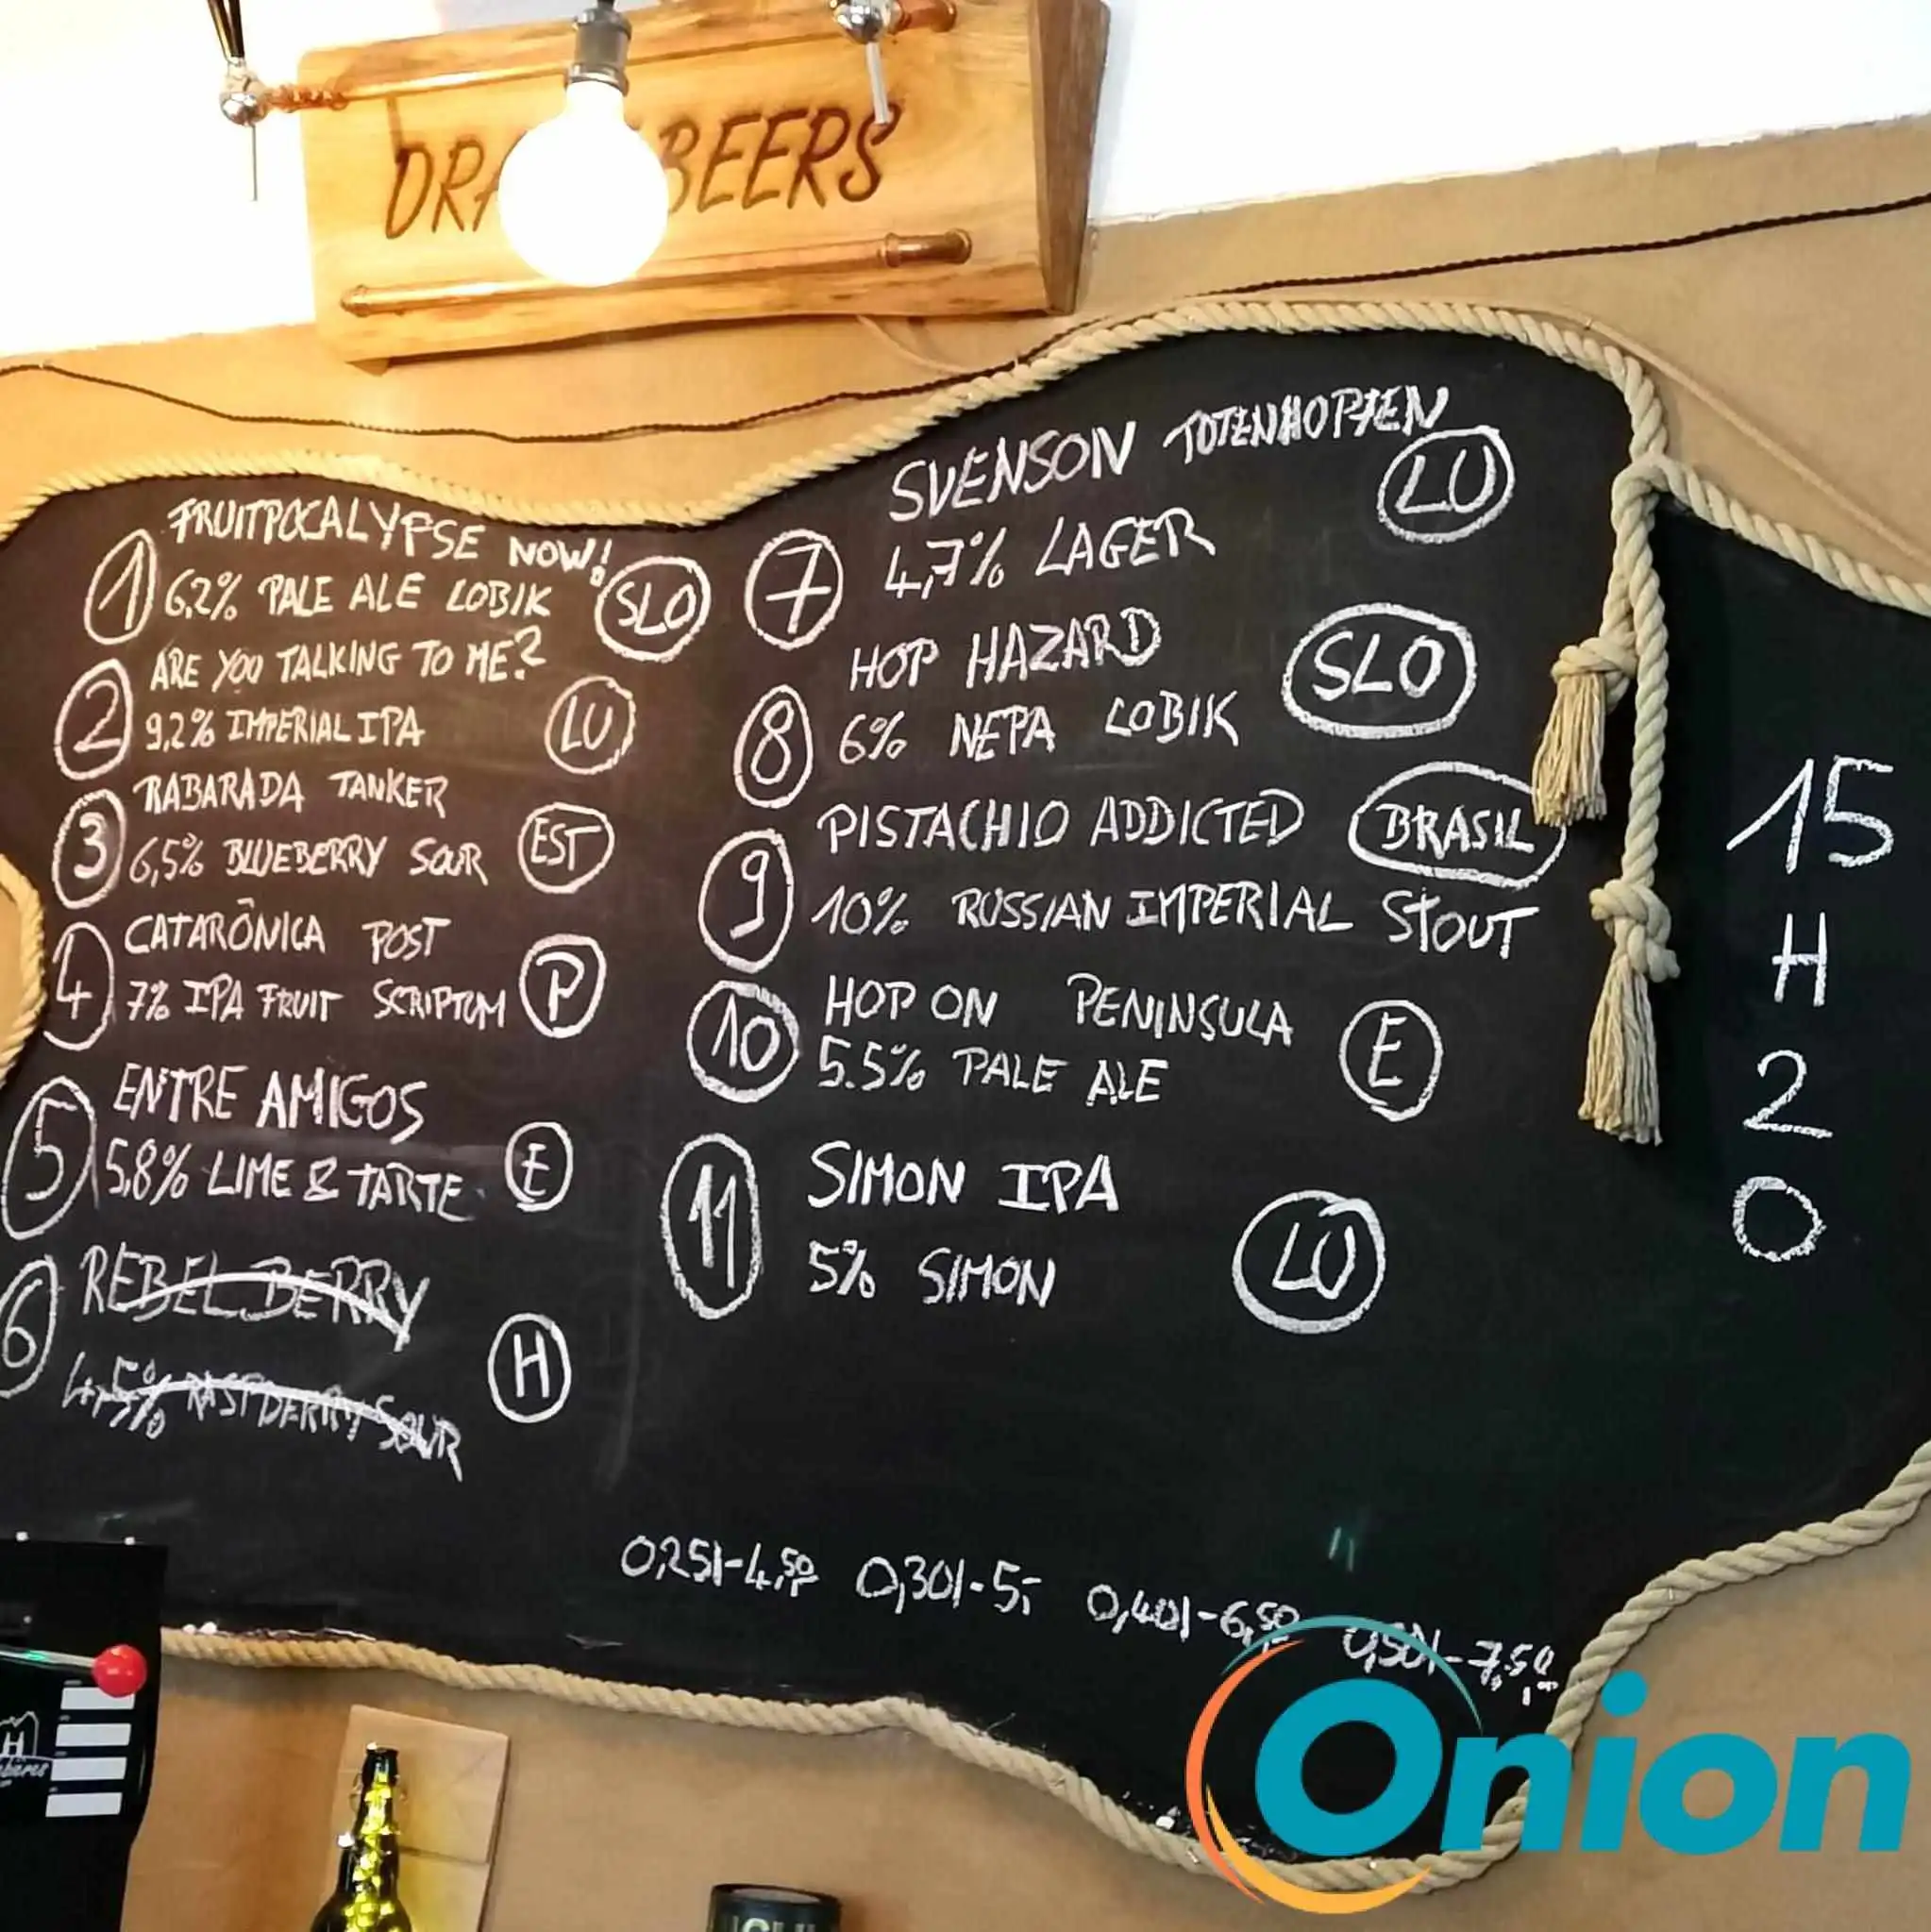 BEERS
1
FRUITPOCALYPSE NOW!
6,2% PALE ALE LOBIK
SLO
2
ARE YOU TALKING TO ME?
9,2% IMPERIAL IPA
LU
3
RABARADA TANKER
6,5% BLUEBERRY SOUR
EST
4
CATARÔNICA POST
7% IPA FRUIT SCRIPTUM
P
5
ENTRE AMIGOS
5,8% LIME & TARTE
E
6
REBEL BERRY
4,5% RASPBERRY SOUR
H
7
SVENSON TOTENHOPFEN
4,7% LAGER
LU
8
HOP HAZARD
6% NEPA LOBIK
SLO
9
PISTACHIO ADDICTED
BRASIL
10% RUSSIAN IMPERIAL STOUT
10
HOP ON PENINSULA
5.5% PALE ALE
E
11
SIMON IPA
5% SIMON
LU
15
H
2
O
0,25l-4,50 0,30l-5,- 0,40l-6,50 0,50l-7,50
Onion